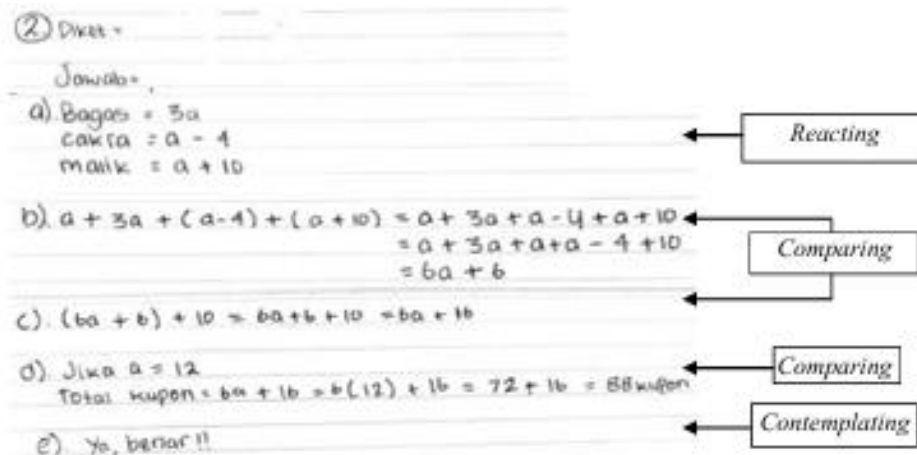 ② Diket =
Jawab =
a). Bagas = 3a
cakra = a - 4
malik = a + 10
Reacting
b). a + 3a + (a-4) + (a+10) = a + 3a + a - 4 + a + 10
= a + 3a + a + a - 4 + 10
= 6a + 6
Comparing
c). (6a + 6) + 10 = 6a + 6 + 10 = 6a + 16
d). Jika a = 12
Total kupon = 6a + 16 = 6(12) + 16 = 72 + 16 = 88 kupon
Comparing
e). Ya, benar!!
Contemplating